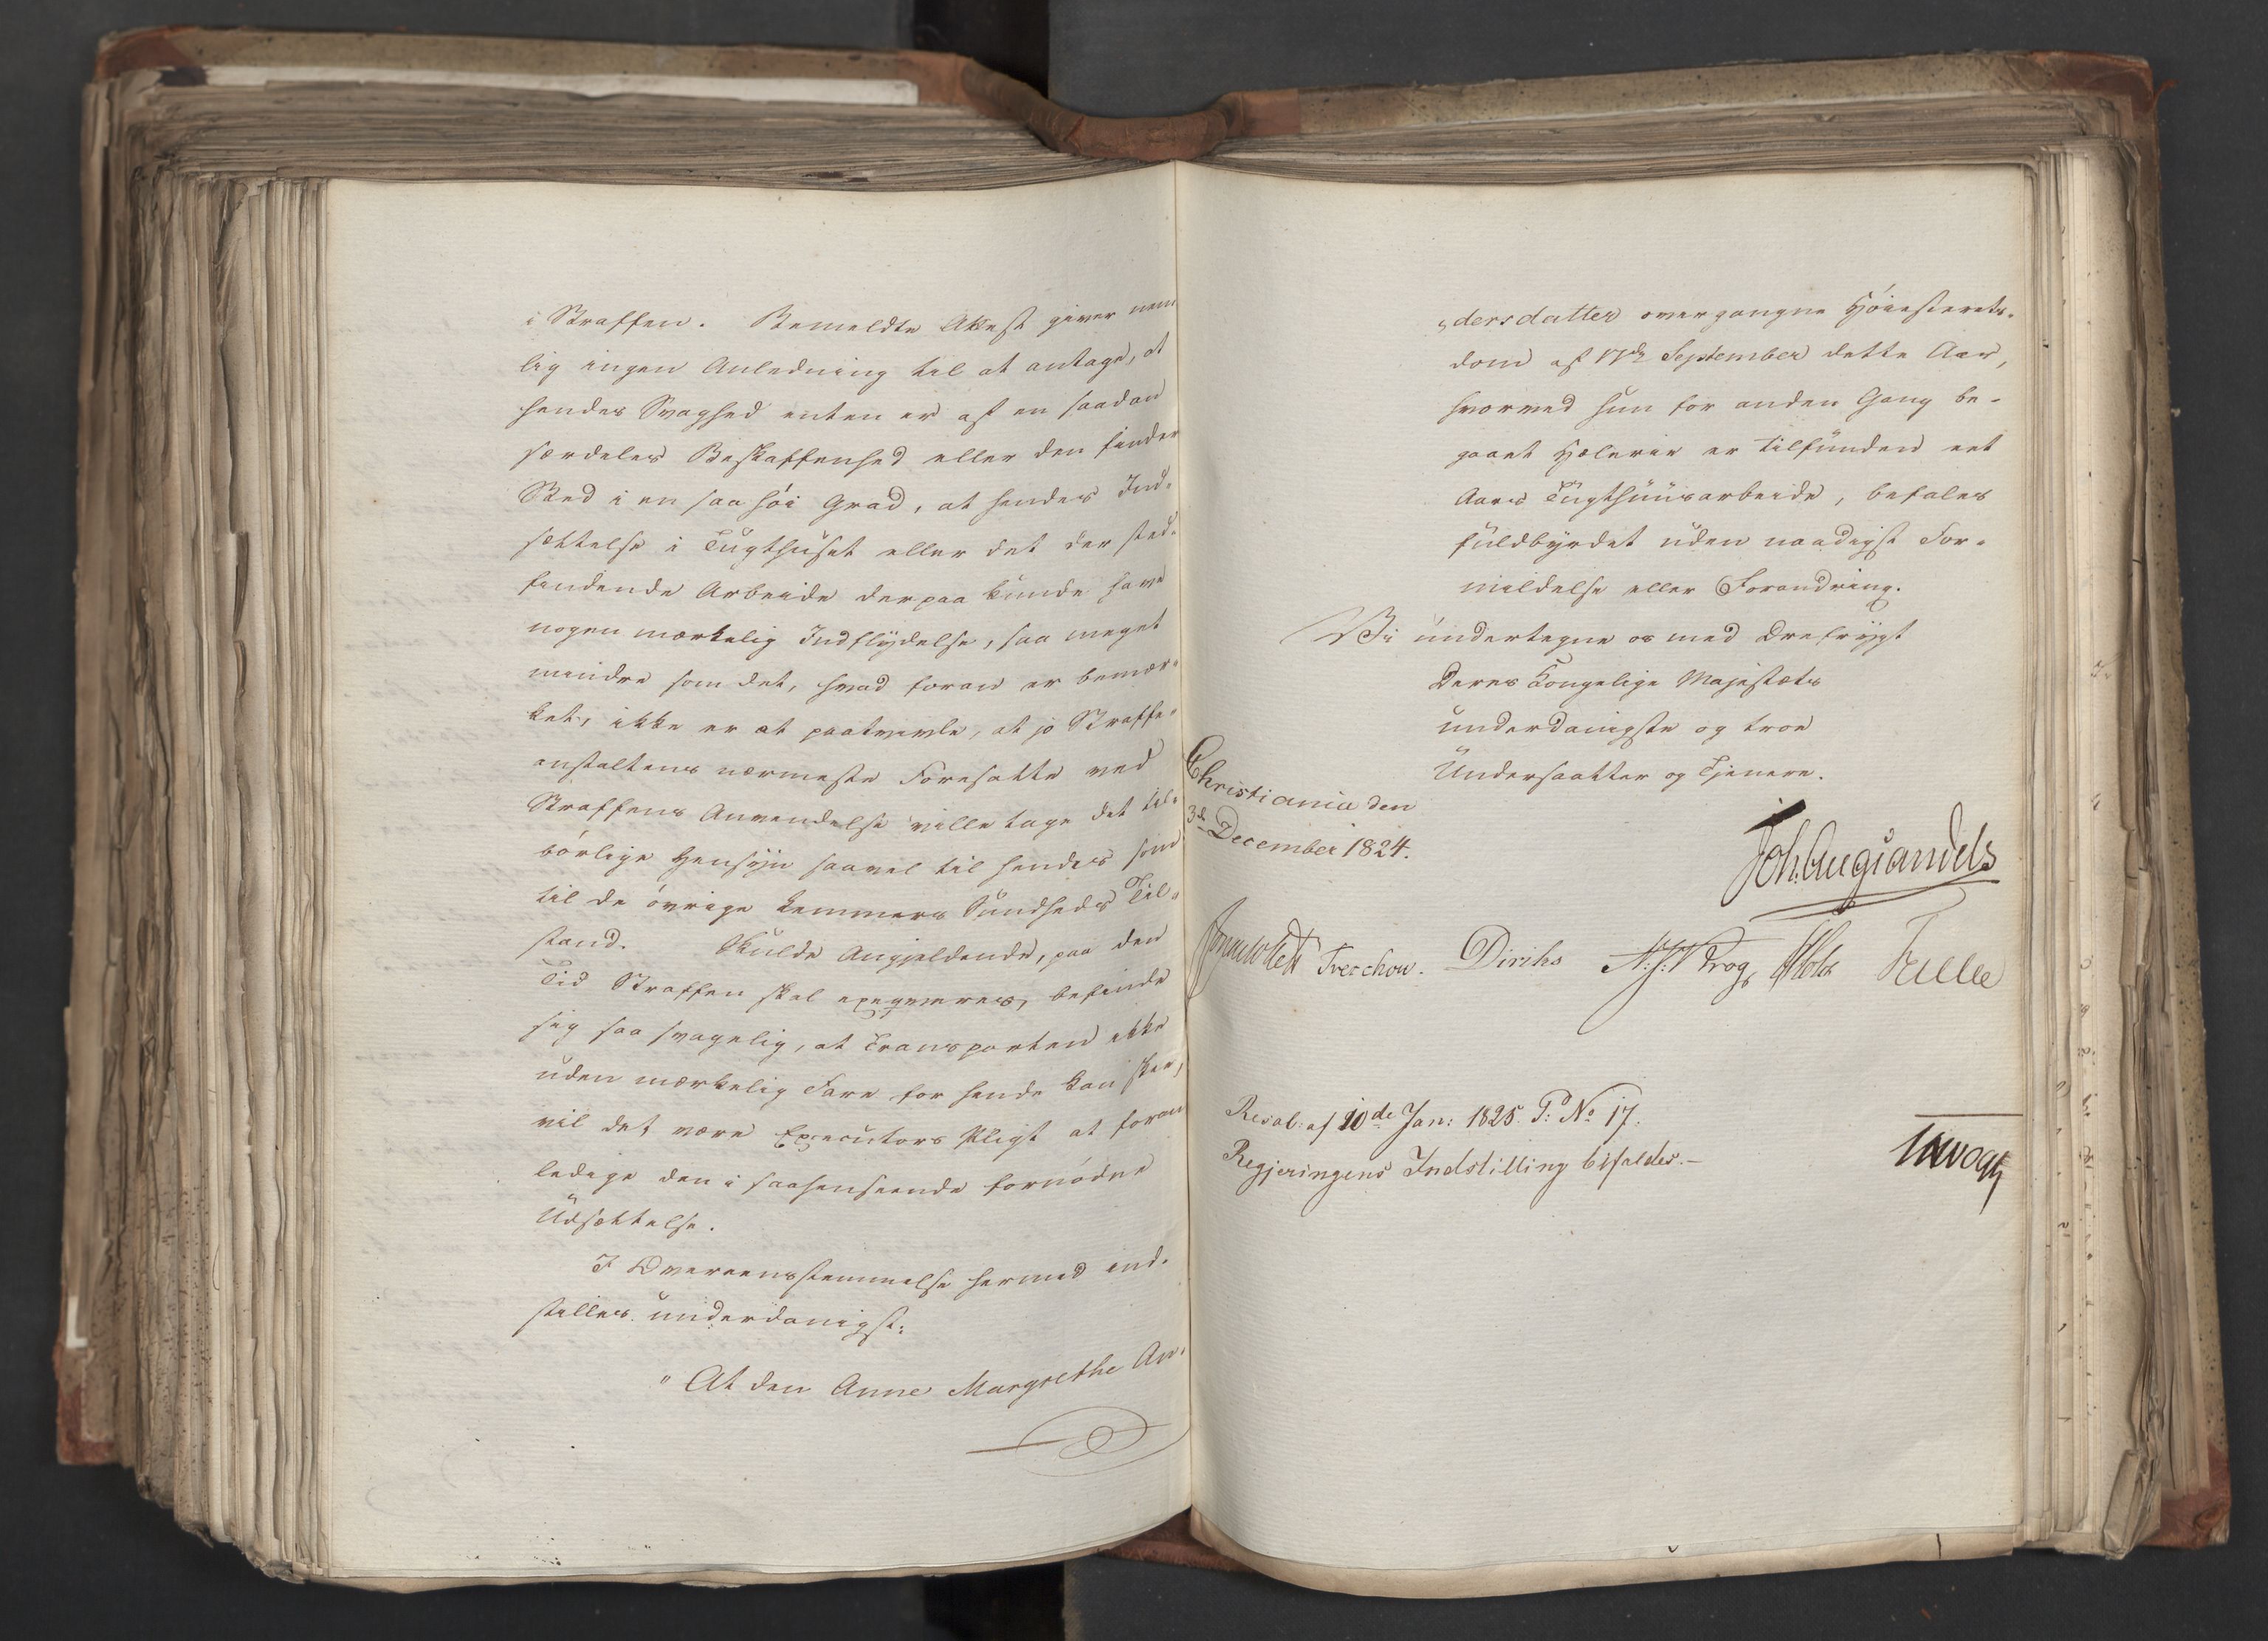 i Straffen. Bemeldte Attest giver nem-
lig ingen Anledning til at antage, at
hendes Svaghed enten er af en saadan
særdeles Beskaffenhed eller den finder
Sted i en saa høi Grad, at hendes Ind-
sættelse i Tugthuset eller det der sted-
findende Arbeide derpaa kunde have
nogen mærkelig Indflydelse, saa meget
mindre som det, hvad foran er bemær-
ket, ikke er at paatvivle, at jo Straffe-
anstaltens nærmeste Foresatte ved
Straffens Anvendelse ville tage det til-
børlige Hensyn saavel til hendes som
til de øvrige Lemmers Sundheds Til-
stand. Skulde Angjeldende, paa den
Tid Straffen skal exeqveres, befinde
sig saa svagelig, at Transporten ikke
uden mærkelig Fare for hende kan skee,
vil det være Executors Pligt at foran-
ledige den i saahenseende fornødne
Udsættelse.
I Overeensstemmelse hermed ind-
stilles underdanigst:
"At den Anne Margrethe An-
dersdatter overgangne Høiesterets-
dom af 17de September dette Aar,
hvorved hun for anden Gang be-
gaaet Hæleri er tilfunden eet
Aars Tugthuusarbeide, befales
fuldbyrdet uden naadigst For-
mildelse eller Forandring.
Vi undertegne os med Ærefrygt
Deres Kongelige Majestæts
underdanigste og troe
Undersaatter og Tjenere.
Christiania den
3de December 1824.
Joh. Aug Sandels
Treschow. Diriks N: J: Krog Holst
Resol: af 10de Jan: 1825. P: No 17.
Regjeringens Indstilling bifaldes.-
Vogt